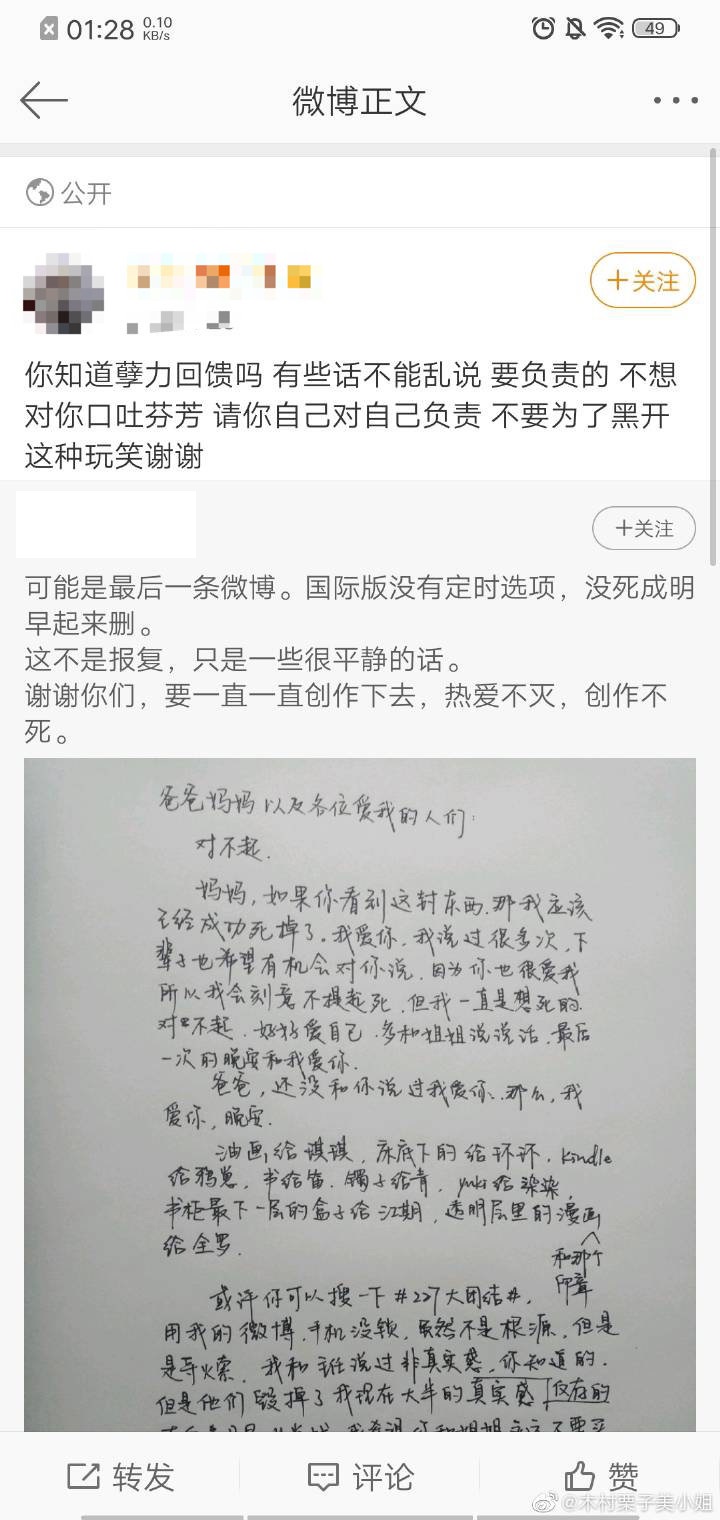 01:28 0.10 KB/s 49
微博正文
公开
+关注
你知道孽力回馈吗 有些话不能乱说 要负责的 不想
对你口吐芬芳 请你自己对自己负责 不要为了黑开
这种玩笑谢谢
+关注
可能是最后一条微博。国际版没有定时选项，没死成明
早起来删。
这不是报复，只是一些很平静的话。
谢谢你们，要一直一直创作下去，热爱不灭，创作不
死。
爸爸妈妈以及各位爱我的人们：
对不起.
妈妈，如果你看到这封东西.那我应该
已经成功死掉了。我爱你.我说过很多次，下
辈子也希望有机会对你说.因为你也很爱我
所以我会刻意不提起死.但我一直是想死的.
对不起.好好爱自己.多和姐姐说说话.最后
一次的晚安和我爱你.
爸爸，还没和你说过我爱你..那么，我
爱你，晚安.
油画给琪琪，床底下的给环环.kindle
给鸦崽，书给笛.镯子给青. 给染染，
书柜最下一层的盒子给江期，透明层里的漫画
和那个
印章
给全罗.
或许你可以搜一下#227大团结#，
用我的微博.手机没锁.虽然不是根源.但是
是导火索.我和 说过非真实感.你知道的.
但是他们毁掉了我现在大半的真实感仅存的
转发 评论 赞
@木村栗子美小姐